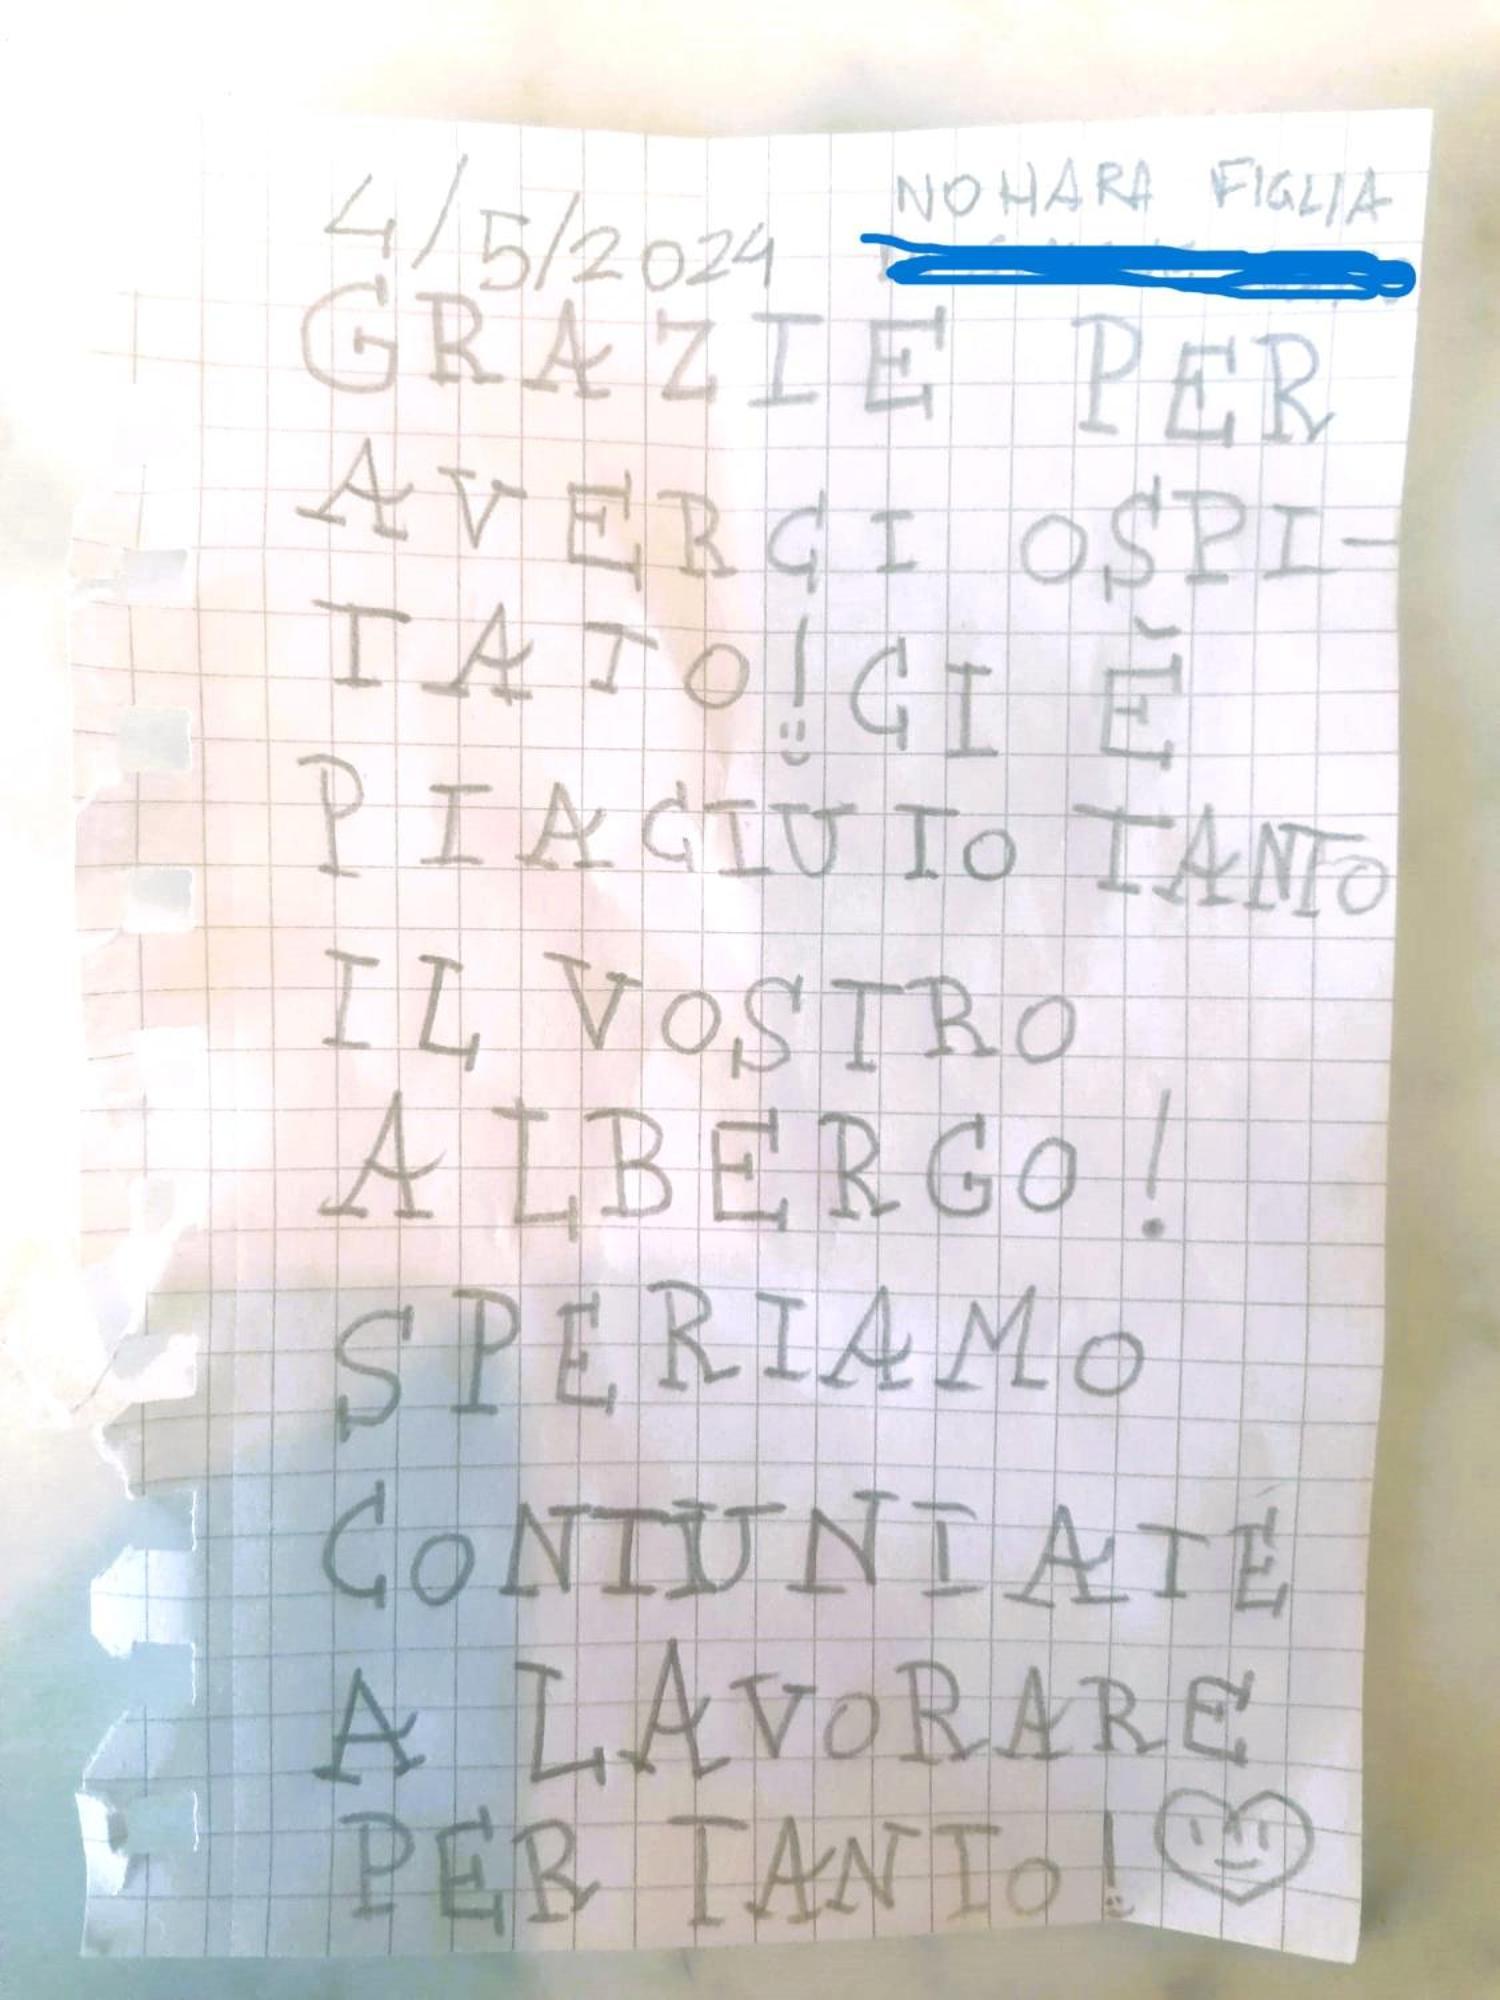 4/5/2024 NOHARA FIGLIA
GRAZIE PER
AVERCI OSPI-
TATO! CI È
PIACIUTO TANTO
IL VOSTRO
ALBERGO!
SPERIAMO
CONTIUNIATE
A LAVORARE
PER TANTO!